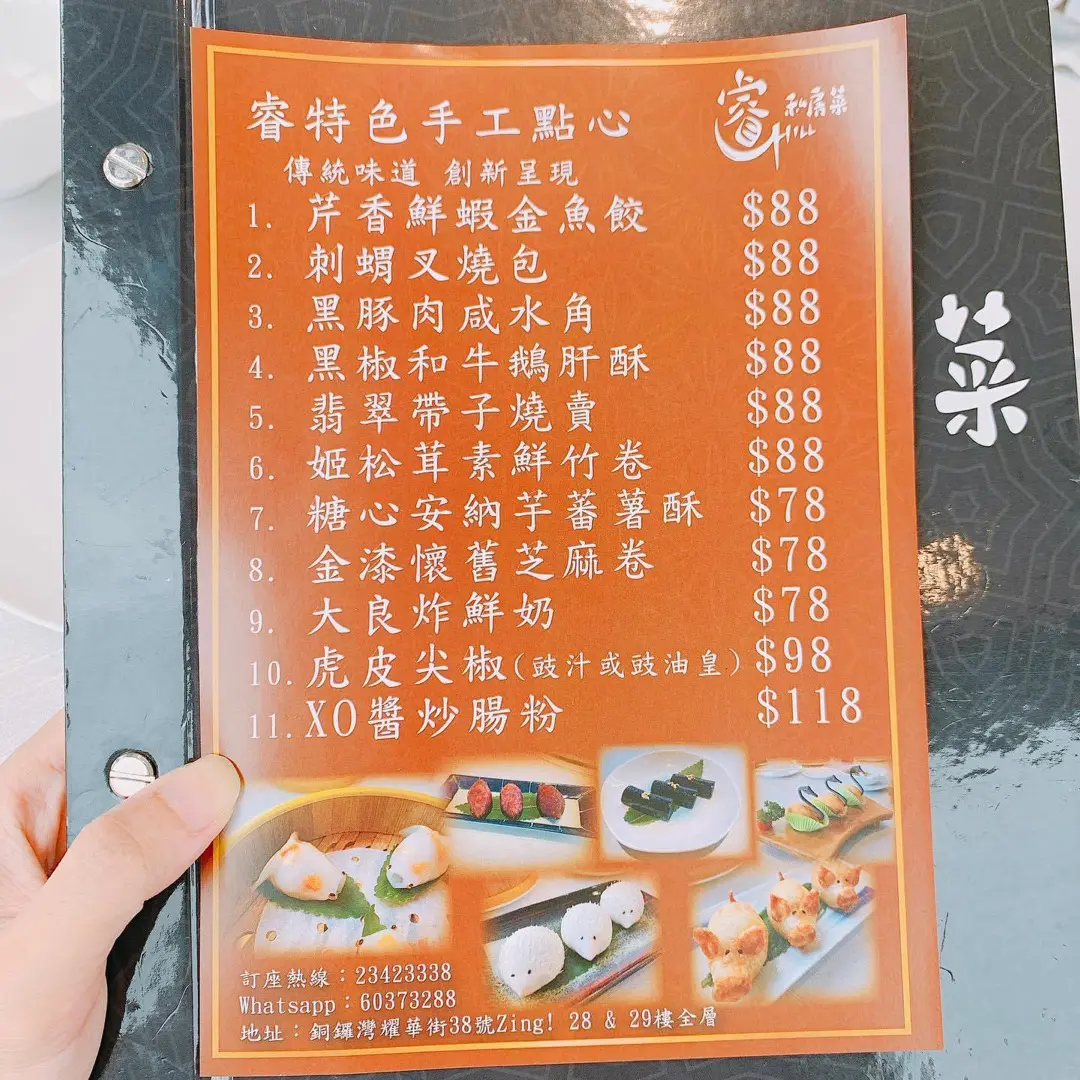 睿特色手工點心
睿 私房菜
HILL
傳統味道 創新呈現
1. 芹香鮮蝦金魚餃 $88
2. 刺蝟叉燒包 $88
3. 黑豚肉咸水角 $88
4. 黑椒和牛鵝肝酥 $88
5. 翡翠帶子燒賣 $88
6. 姬松茸素鮮竹卷 $88
7. 糖心安納芋蕃薯酥 $78
8. 金漆懷舊芝麻卷 $78
9. 大良炸鮮奶 $78
10. 虎皮尖椒(豉汁或豉油皇) $98
11. XO醬炒腸粉 $118
菜
訂座熱線：23423338
Whatsapp：60373288
地址：銅鑼灣耀華街38號Zing! 28 & 29樓全層